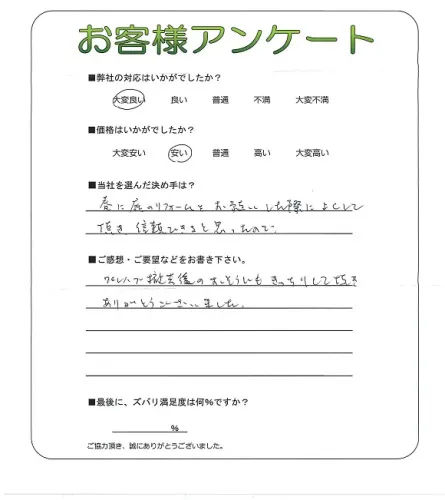 お客様アンケート
■弊社の対応はいかがでしたか？
大変良い 良い 普通 不満 大変不満
■価格はいかがでしたか？
大変安い 安い 普通 高い 大変高い
■当社を選んだ決め手は？
春に庭のリフォームをお願いした際によくして
頂き、信頼できると思ったので。
■ご感想・ご要望などをお書き下さい。
撤去後のおそうじもきっちりして頂き
ありがとうございました。
■最後に、ズバリ満足度は何%ですか？
%
ご協力頂き、誠にありがとうございました。